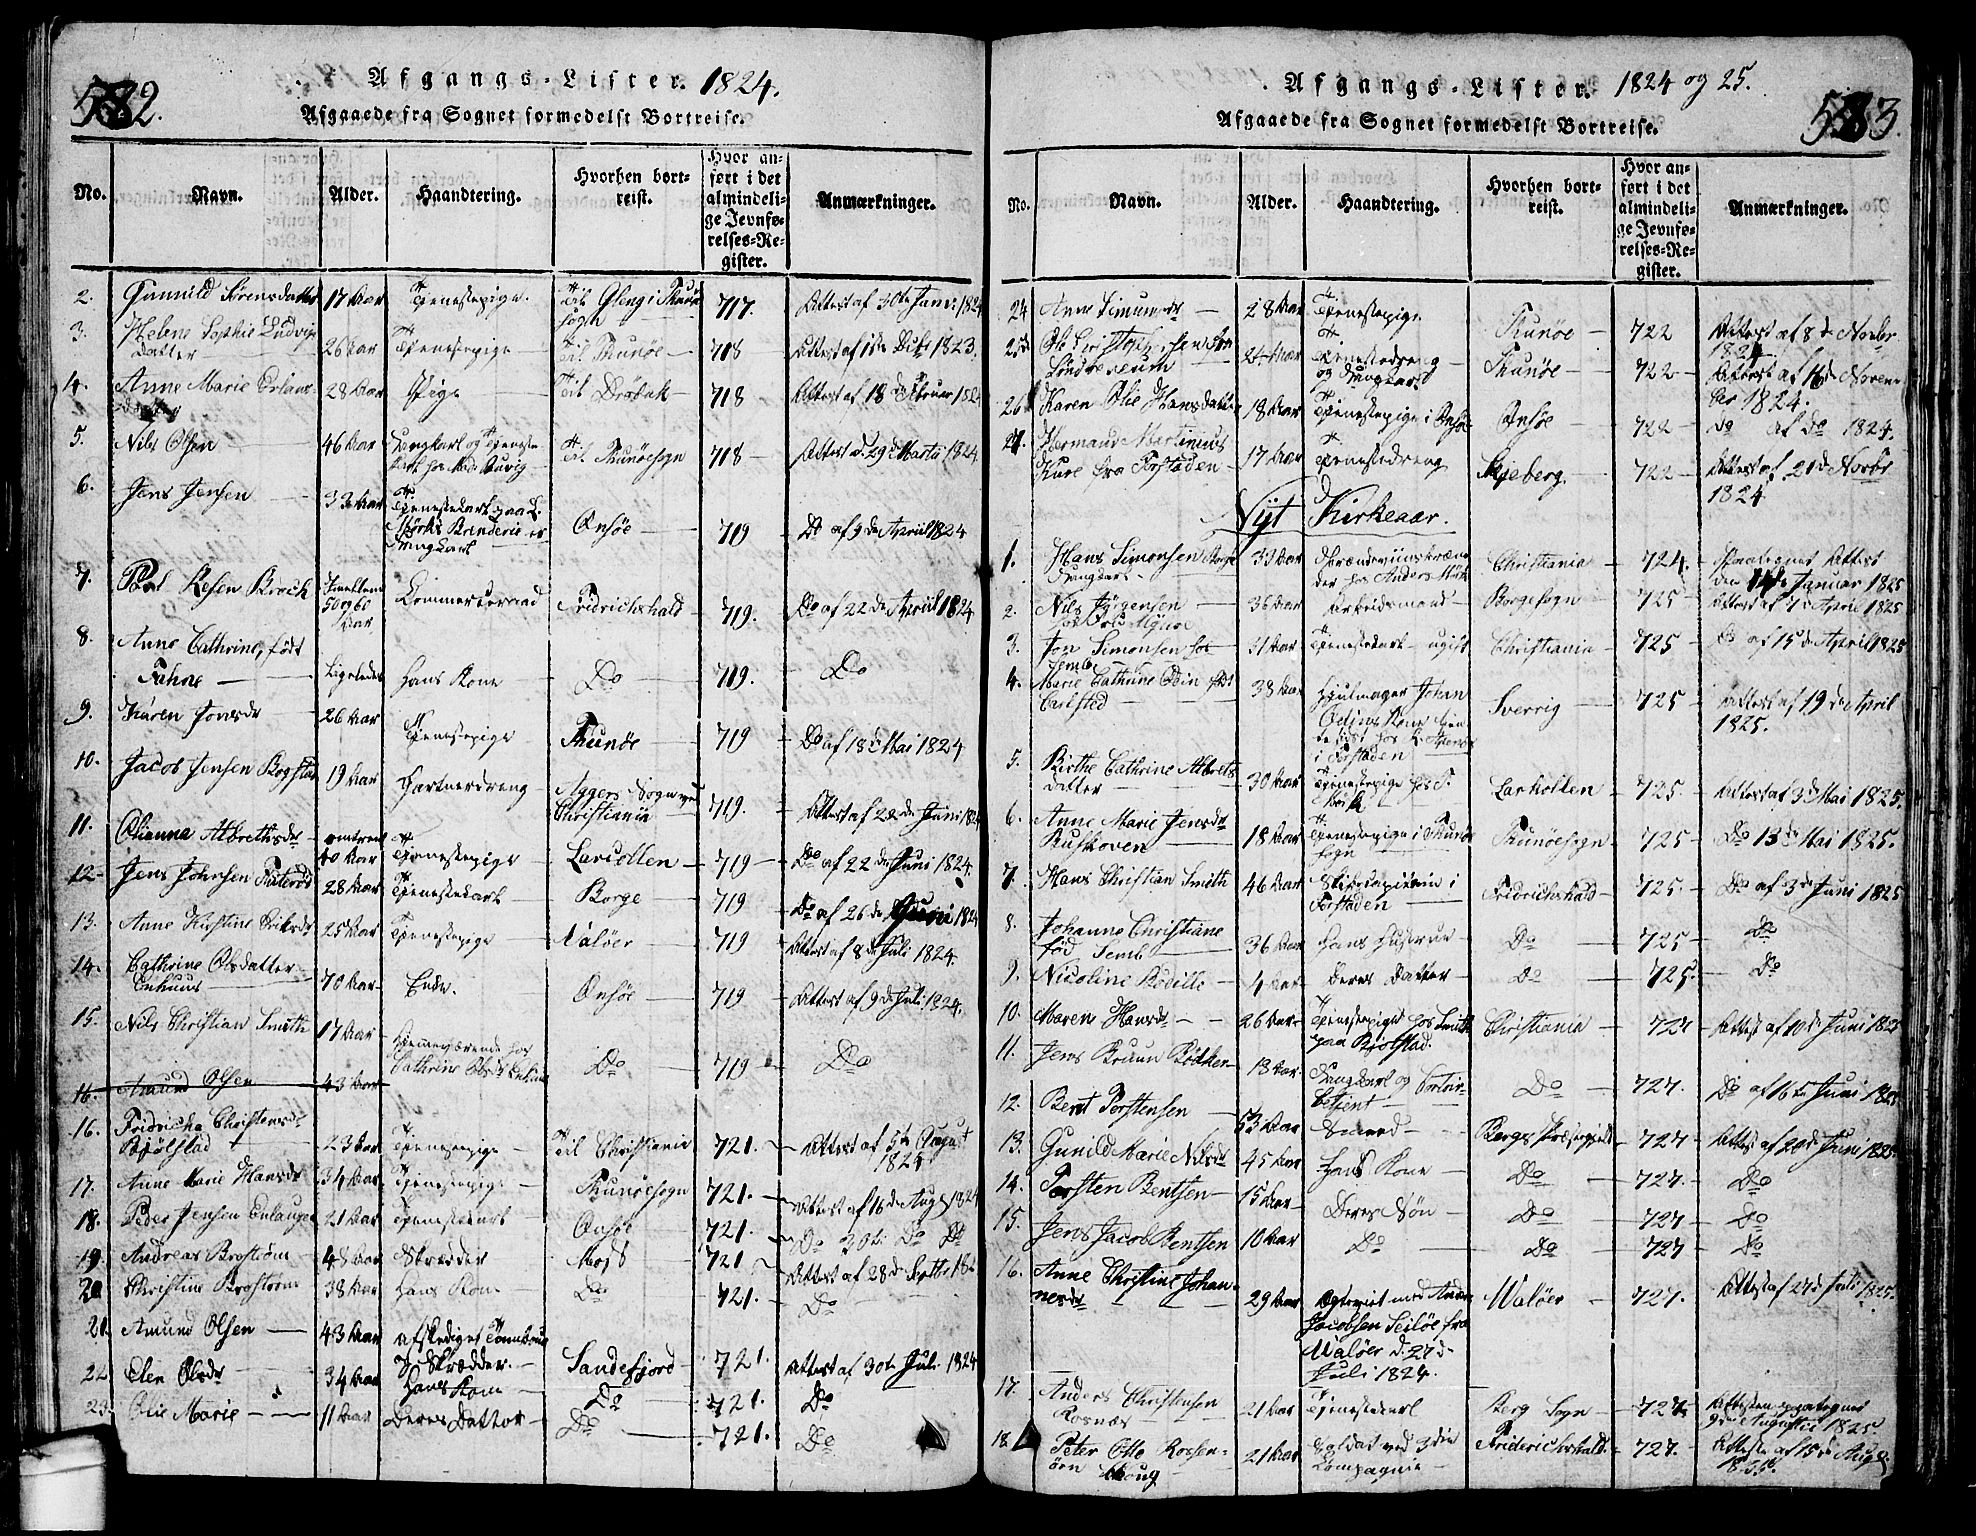 582.
Afgangs-Lister. 1824.
Afgaaede fra Sognet formedelst Bortreise.
No. Navn. Alder. Haandtering. Hvorhen bortreist. Hvor anført i det almindelige Jevnførelses-Register. Anmærkninger.
2. Gunnild Sørensdatter 17 Aar Tjenestepige Til Glengs Thunøe sogn 717. Attest af 30te Janr 1824
3. Helene Sophie Ludvigs Datter 26 Aar Tjenestepige Til Thunøe 718 Attest af 1ste Dcbr 1823.
4. Anne Marie 28 Aar Pige Til Drøbak 718 Attest af 18de Februar 1824
5. Nils Olsen 46 Aar Til Thunøesogn 718 Attest d. 29de Marts 1824
6. Jens Jensen 33 Aar Tjenestekarl paa Brenderie Onsøe 719 Do af 9de April 1824
7. Broch Imellem 50 og 60 Aar Commerceraad Fridrichshald 719. Do af 22de April 1824
8. Anne Cathrine, født Fahne Ligeledes Hans Kone Do 719. Do
9. Karen Jonsdr 26 Aar Tjenestepige Thunøe 719 Do af 18de Mai 1824
10. Jacob Jensen Bogstad 19 Aar Gartnerdreng Aggers Sogn ved Christiania 719. Attest af 22de Juni 1824
11. Olianna Albrethsdr omtrent 40 Aar Tjenestepige Larcollen 719 Do af 22de Juni 1824.
12 Jens Johnsen 28 Aar Tjenestekarl Borge 719 Do af 26de Juni 1824
13. Anne Kirstine Eriksdr 25 Aar Tjenestepige Valøer 719 Attest af 8de Juli 1824.
14. Cathrine Olsdatter Enhuus 70 Aar Enke. Onsøe 719 Attest af 9de Juli 1824.
15. Nils Christian Smith 17 Aar Hjemmeværende hos Cathrine Olsdr Enhuus Do 719 Do
16. Amund Olsen 43 Aar
16. Fridricha Christensdr Bjølstad 23 Aar Tjenestepige Til Christiania 721. Attest af 5te August 1824
17. Anne Marie Hansdr 34 Aar Tjenestepige Thunøesogn 721. Attest af 16de Aug 1824
18. Peder Jensen Enhauge 21 Aar Tjenestekarl Onsøe 721. Do 30te Do Do
19. Andreas Brostrøm 48 Aar Skrædder Moss 721 Attest af 28de Septbr 182
20 Christine Brostrøm 38 Aar Hans Kone Do 721. Do
21. Amund Olsen 43 Aar afskediget Skrædder Sandefjord 721. Attest af 30te Juli 1824
22 Elen Olsdr 34 Aar Hans Kone Do 721. Do
23. Olie Marie 11 Aar Deres Datter Do 721. Do
583.
Afgangs-Lister. 1824 og 25.
Afgaaede fra Sognet formedelst Bortreise.
No. Navn. Alder. Haandtering. Hvorhen bortreist. Hvor anført i det almindelige Jevnførelses-Register. Anmærkninger.
24 Anne Simunsdr 28 Aar Tjenestepige Thunøe 722 Attest af 8de Novbr 1824
25 24 Aar Tjenestedreng og Thunøe 722 Attest af 16de November 1824.
26 Karen Olie Hansdatter 18 Aar Tjenestepige i Onsøe Onsøe 722 do af do 1824.
27. Hermand Martinius Kure fra Forstaden 17 Aar Tjenestedreng Skjeberg 722 Attest af 21de Novbr 1824
Nyt Kirkeaar.
1. Hans Simonsen 33 Aar hos Anders Christiania 724. Paategnet Attest den 14de Januar 1825
2. Nils Jørgensen 36 Aar Arbeidsmand Borgesogn 725 Attest af 7de April 1825
3. Jon Simonsen hos Semb 31 Aar Tjenestekarl ugift Christiania 725 Do af 15de April 1825
4. Marie Cathrine Odin født Carlsted 38 Aar Hjulmager Johan Odins Kone i Forstaden Sverrig 725 Attest af 19de April 1825.
5. Birthe Cathrine Albrets datter 30 Aar Tjenestepige hos Larkollen 725. Attest af 3de Mai 1825.
6. Anne Marie Jensdr Buskoven 18 Aar Tjenestepige i Thunøe sogn Thunøesogn 725 Do 13de Mai 1825.
7. Hans Christian Smith 46 Aar Skibscapitain i Forstaden Fridrichshald 725. Do af 3de Juni 1825
8. Johanne Christiane fød Semb 36 Aar Hans Hustrue Do 725 Do
9. Nicoline Bodille 4 Aar Deres Datter Do 725. Do
10. Maren Hansdr 26 Aar Tjenestepige hos Smith paa Bjølstad. Christiania 727 Attest af 10de Juni 1825
11. Jens Bruun Bødtker 18 Aar og Contoirbetjent Do 727. Do af 16de Juni 1825
12. Bent Torstensen 53 Aar Smed Berges Præstegjeld 727 Attest af 20de Juni 1825.
13. Gunild Marie Nilsdr 45 Aar Hans Kone Do 727. Do
14. Torsten Bentsen 15 Aar Deres Søn Do 727 Do
15. Jens Jacob Bentsen 10 Aar Do Do 727 Do
16. Anne Christine Johannesdr 29 Aar Egteviet med Anders Jacobsen Seiløe fra Walöer d. 27de Juli 1824. Walöer 727. Attest af 27de Juli 1825.
17. Anders Christensen Rosnæs 21 Aar Tjenestekarl Berg Sogn 727. Attesten paategnet 9de August 1825.
18. Peter Otto Rosenørn Houg 21 Aar Soldat ved 3die Compagnie Friderichshald. 727. Attest af 15de Aug 1825.